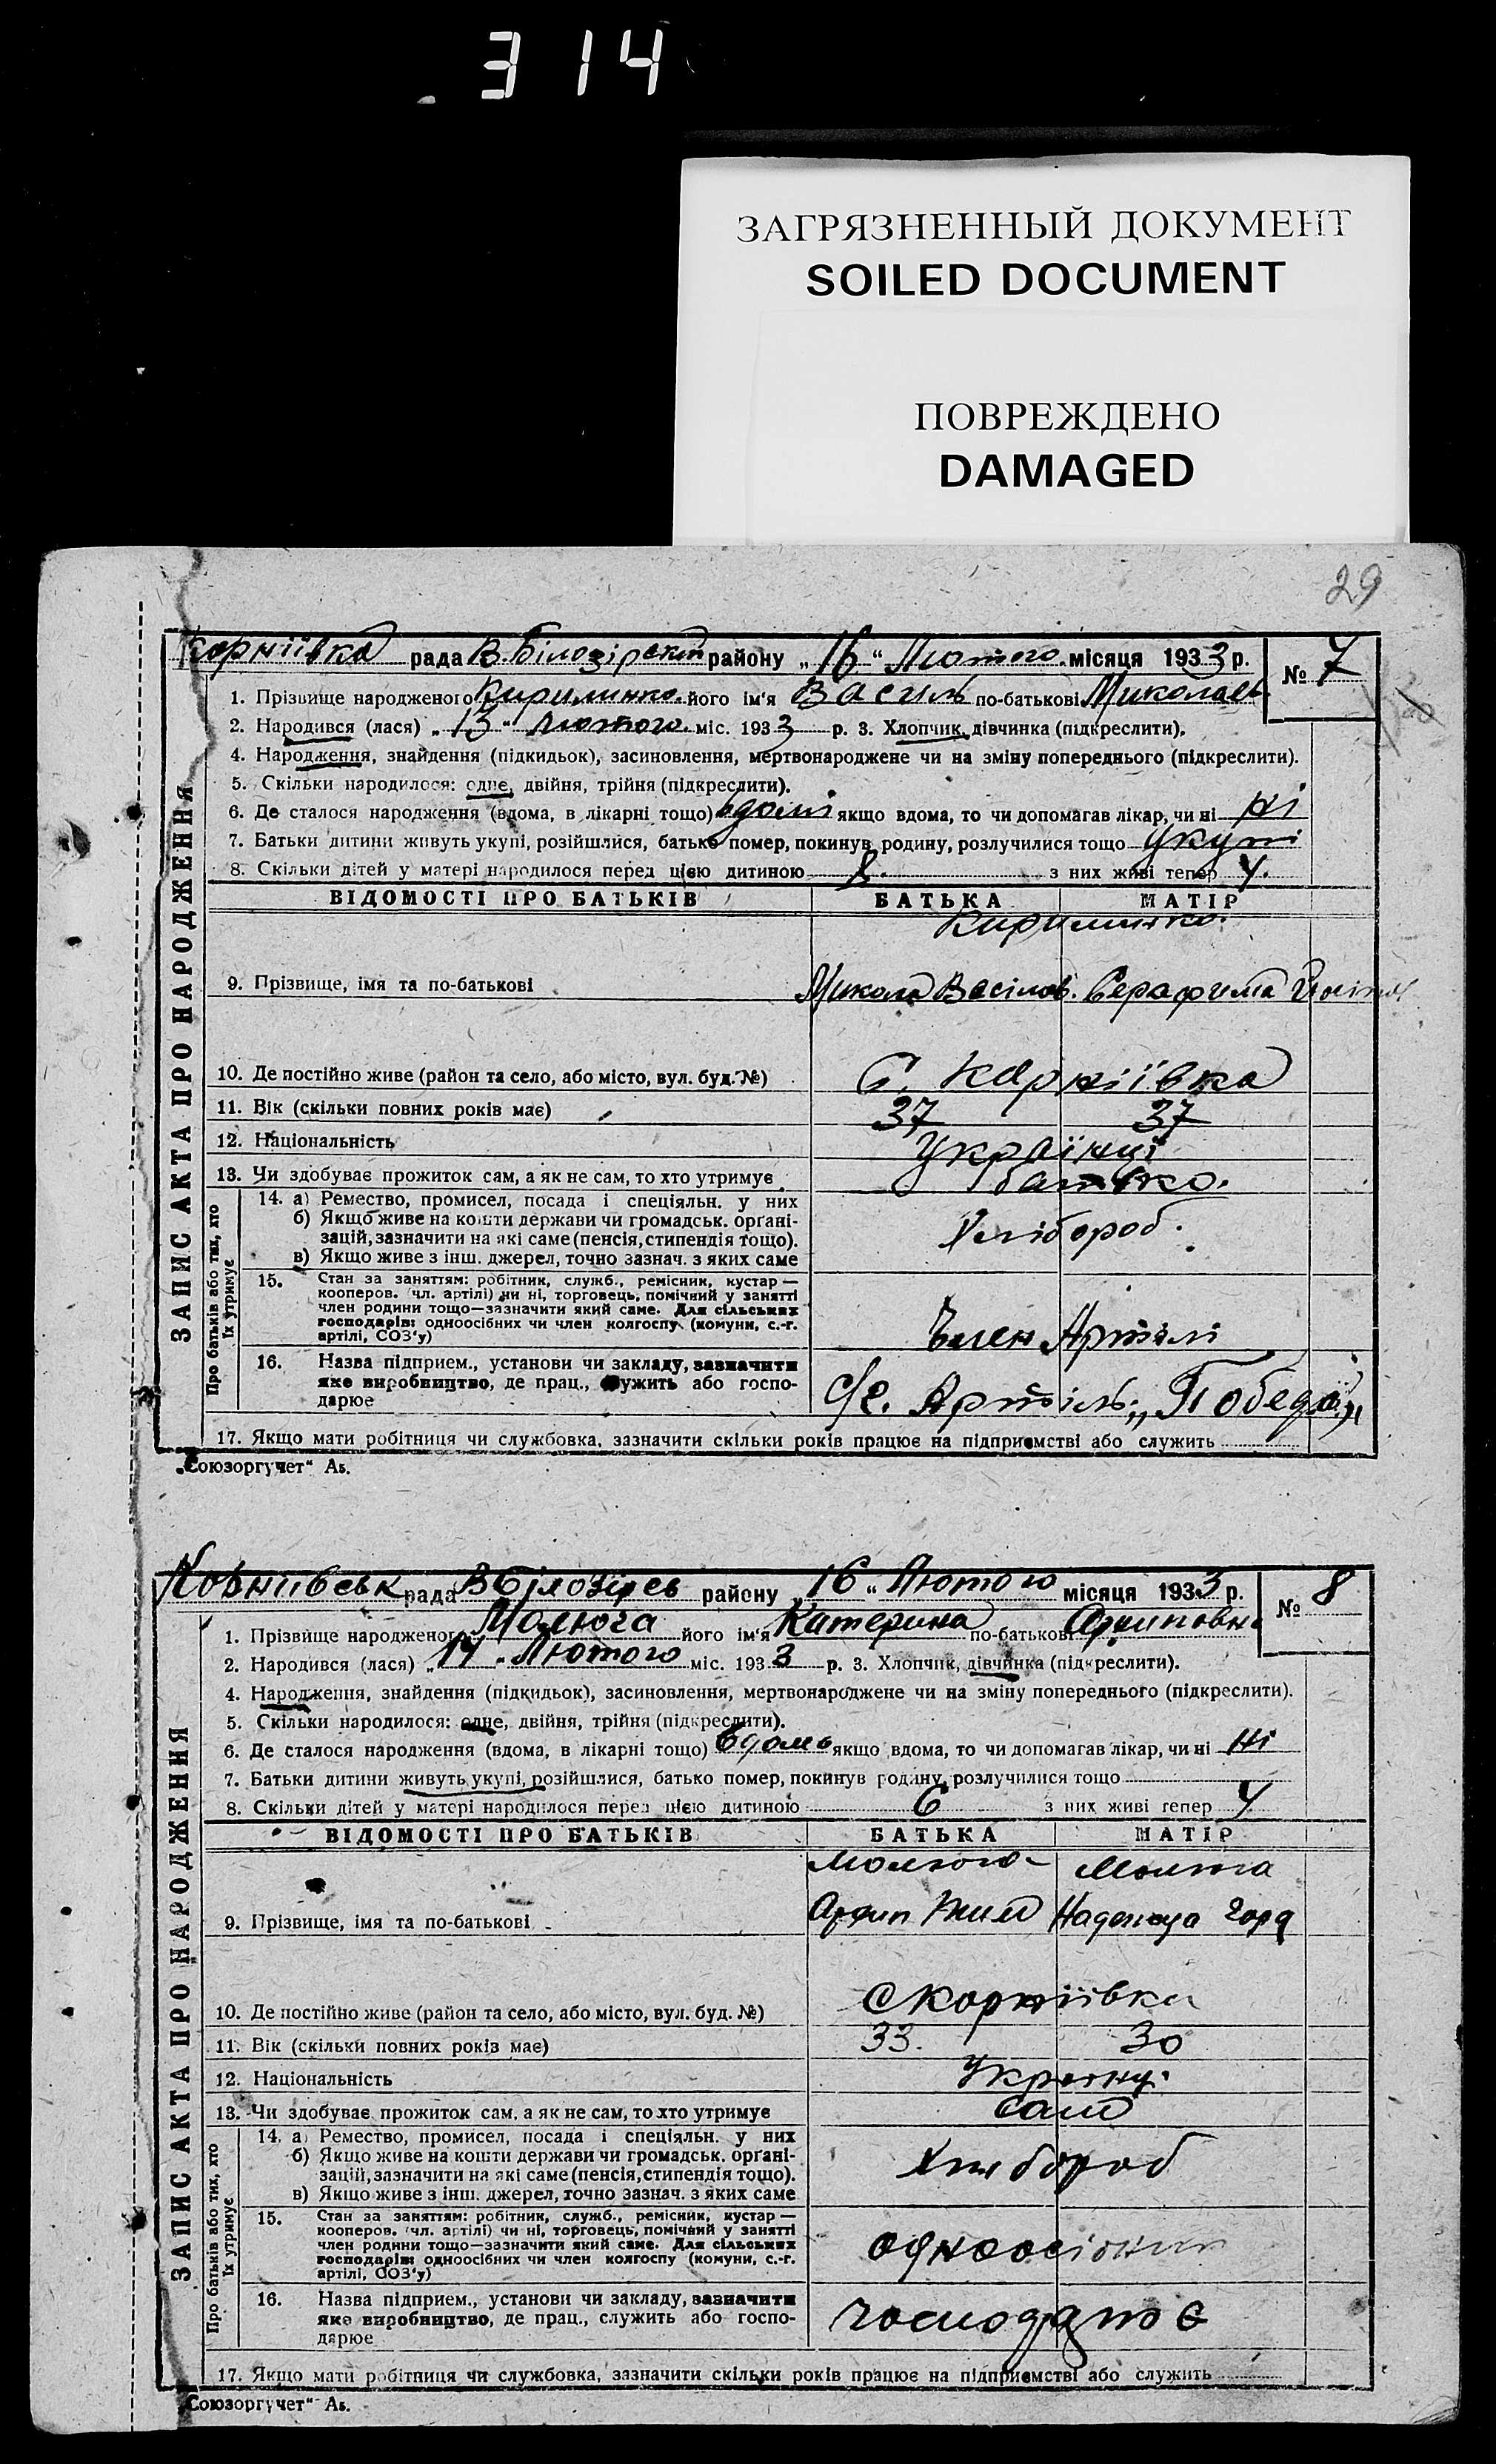 314
ЗАГРЯЗНЕННЫЙ ДОКУМЕНТ
SOILED DOCUMENT
ПОВРЕЖДЕНО
DAMAGED
29
Корніївка рада В. Білозірськ району „ 16 “ Лютого місяця 1933 р. № 7
ЗАПИС АКТА ПРО НАРОДЖЕННЯ
1. Прізвище народженого його ім'я Василь по-батькові Миколаєв.
2. Народився (лася) „ 13 “ Лютого міс. 1933 р. 3. Хлопчик, дівчинка (підкреслити).
4. Народження, знайдення (підкидьок), засиновлення, мертвонароджене чи на зміну попереднього (підкреслити).
5. Скільки народилося: одне, двійня, трійня (підкреслити).
6. Де сталося народження (вдома, в лікарні тощо) вдомі якщо вдома, то чи допомагав лікар, чи ні ні
7. Батьки дитини живуть укупі, розійшлися, батько помер, покинув родину, розлучилися тощо укупі
8. Скільки дітей у матері народилося перед цією дитиною з них живі тепер 4.
ВІДОМОСТІ ПРО БАТЬКІВ БАТЬКА МАТІР
9. Прізвище, імя та по-батькові Микола Васілов. Серафима
10. Де постійно живе (район та село, або місто, вул. буд. №) С. Карніївка
11. Вік (скільки повних років має) 37 37
12. Національність Українці
13. Чи здобуває прожиток сам, а як не сам, то хто утримує батько.
Про батьків або тих, хто їх утримує
14. а) Ремество, промисел, посада і спеціяльн. у них
б) Якщо живе на кошти держави чи громадськ. органі-
зацій, зазначити на які саме (пенсія, стипендія тощо).
в) Якщо живе з інш. джерел, точно зазнач. з яких саме
Хлібороб.
15. Стан за заняттям: робітник, служб., ремісник, кустар —
кооперов. (чл. артілі) чи ні, торговець, помічний у занятті
член родини тощо—зазначити який саме. Для сільських
господарів: одноосібних чи член колгоспу (комуни, с.-г.
артілі, СОЗ'у)
Член Артілі
16. Назва підприєм., установи чи закладу, зазначити
яке виробництво, де прац., служить або госпо-
дарює
Артіль „Победа“
17. Якщо мати робітниця чи службовка, зазначити скільки років працює на підприємстві або служить
„Союзоргучет“ Аь.
Корніівськ рада ВБілозірсв району „ 16 “ Лютого місяця 1933 р. № 8
ЗАПИС АКТА ПРО НАРОДЖЕННЯ
1. Прізвище народженого Малюга його ім'я Катерина по-батькові Архиповна
2. Народився (лася) „ 14 “ Лютого міс. 1933 р. 3. Хлопчик, дівчинка (підкреслити).
4. Народження, знайдення (підкидьок), засиновлення, мертвонароджене чи на зміну попереднього (підкреслити).
5. Скільки народилося: одне, двійня, трійня (підкреслити).
6. Де сталося народження (вдома, в лікарні тощо) вдома якщо вдома, то чи допомагав лікар, чи ні ні
7. Батьки дитини живуть укупі, розійшлися, батько помер, покинув родину, розлучилися тощо
8. Скільки дітей у матері народилося перед цією дитиною 6 з них живі тепер 4
ВІДОМОСТІ ПРО БАТЬКІВ БАТЬКА МАТІР
Малюга Малюга
9. Прізвище, імя та по-батькові Архип Надежда
10. Де постійно живе (район та село, або місто, вул. буд. №) С Корніівка
11. Вік (скільки повних років має) 33. 30
12. Національність
13. Чи здобуває прожиток сам, а як не сам, то хто утримує Самі
Про батьків або тих, хто їх утримує
14. а) Ремество, промисел, посада і спеціяльн. у них
б) Якщо живе на кошти держави чи громадськ. органі-
зацій, зазначити на які саме (пенсія, стипендія тощо).
в) Якщо живе з інш. джерел, точно зазнач. з яких саме
Хлібороб
15. Стан за заняттям: робітник, служб., ремісник, кустар —
кооперов. (чл. артілі) чи ні, торговець, помічний у занятті
член родини тощо—зазначити який саме. Для сільських
господарів: одноосібних чи член колгоспу (комуни, с.-г.
артілі, СОЗ'у)
одноосібник
16. Назва підприєм., установи чи закладу, зазначити
яке виробництво, де прац., служить або госпо-
дарює
17. Якщо мати робітниця чи службовка, зазначити скільки років працює на підприємстві або служить
„Союзоргучет“ Аь.